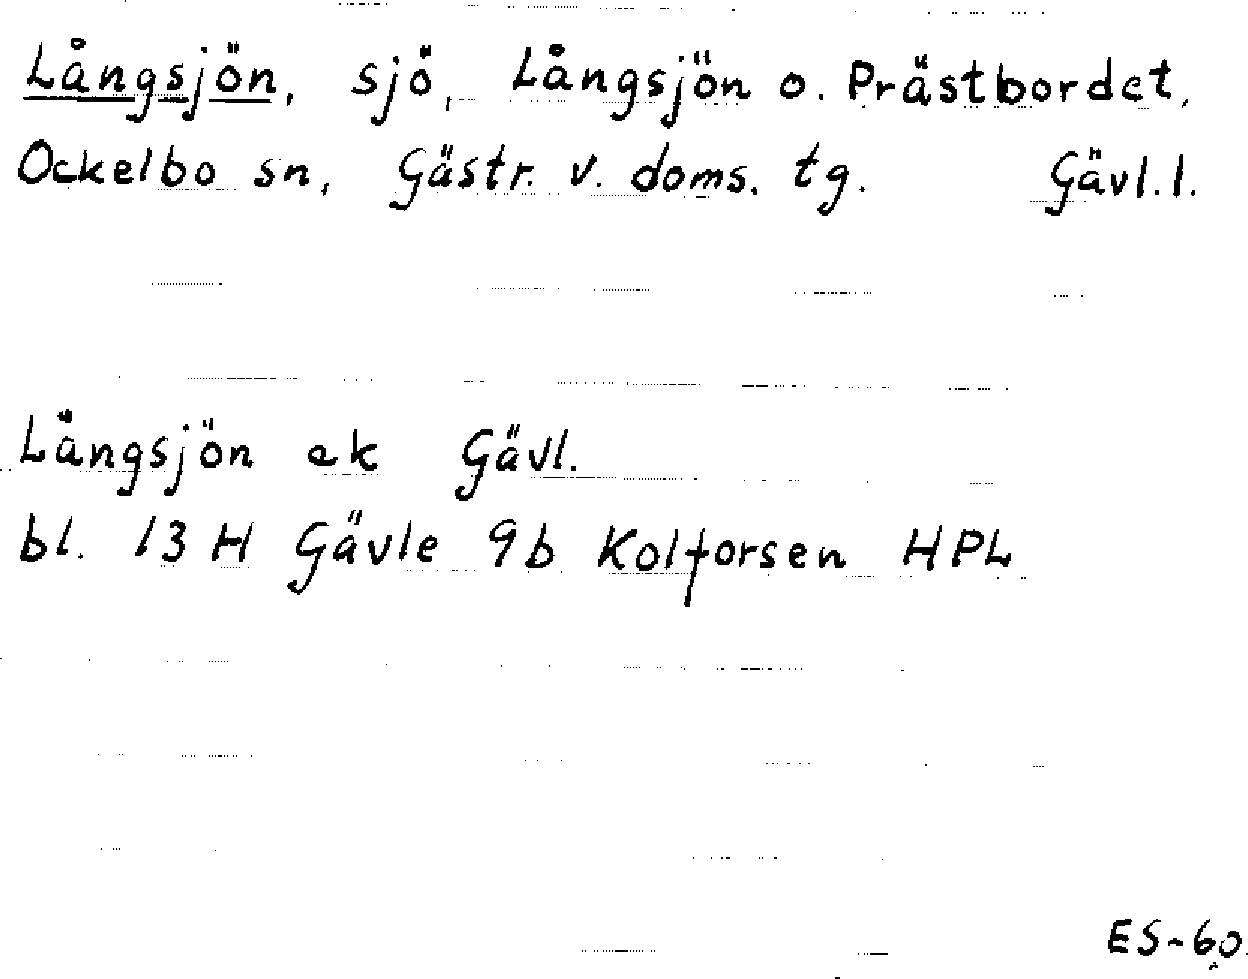 Långsjön, sjö, Långsjön o. Prästbordet,
Ockelbo sn, Gästr. v. doms. tg. Gävl. l.
Långsjön ek Gävl.
bl. 13 H Gävle 9b Kolforsen HPL
ES-60